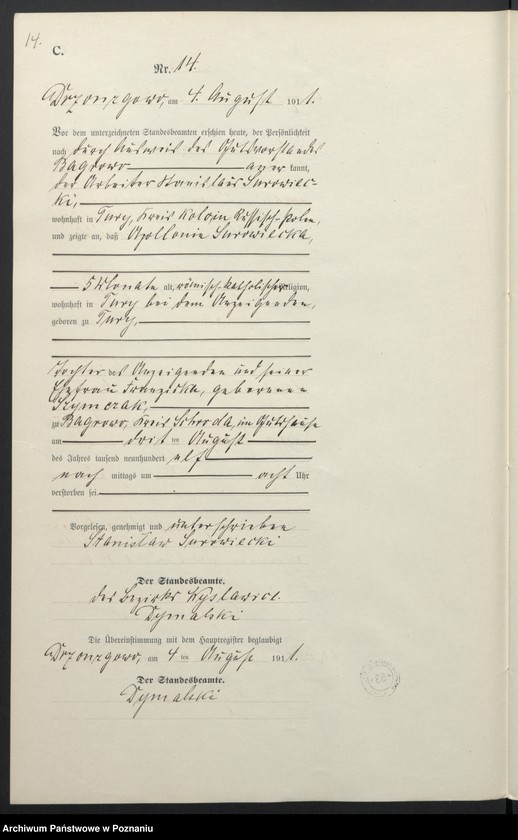 14.
C.
Nr. 14.
am 4. August 1911.
Vor dem unterzeichneten Standesbeamten erschien heute, der Persönlichkeit
nach durch Ausweis des Gutsvorstandes
Bagrowo kannt,
der Arbeiter Stanislaus Surowiec-
ki,
wohnhaft in Turz, Kreis Russisch-Polen,
und zeigte an, daß Apollonie Surowiecka,
5 Monate alt, römisch-katholischer Religion,
wohnhaft in Turz bei dem Anzeigenden,
geboren zu Turz,
Tochter des Anzeigenden und seiner
Ehefrau Franziska, geborenen
Szymczak,
zu Bagrowo, Kreis Schroda, im Gutshause
am drit ten August
des Jahres tausend neunhundert elf
nach mittags um acht Uhr
verstorben sei.
Vorgelesen, genehmigt und unterschrieben
Stanisław Surowiecki
Der Standesbeamte.
des Bezirks
Dymalski
Die Übereinstimmung mit dem Hauptregister beglaubigt
am 4 ten August 1911.
Der Standesbeamte.
Dymalski
Archiwum Państwowe w Poznaniu